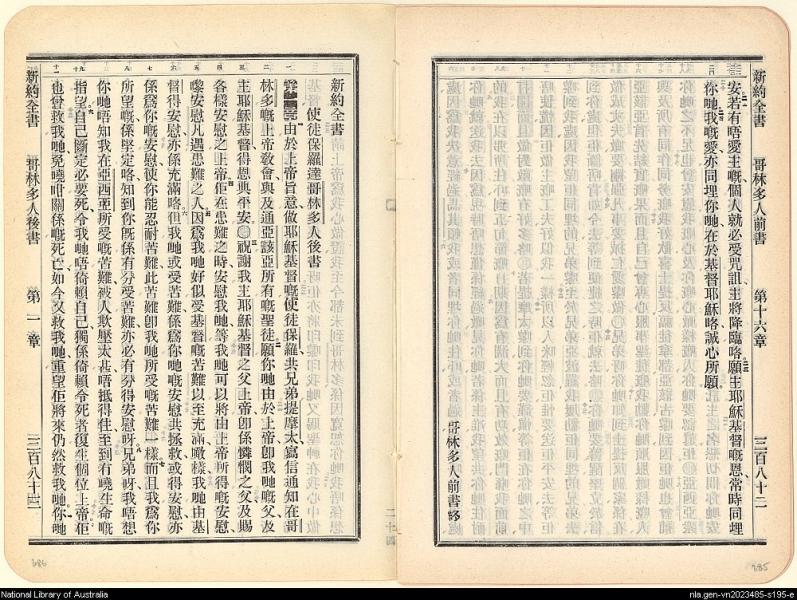 新約全書 哥林多人前書 第十六章 三百八十二
安若有唔愛主嘅個人就必受咒詛主將降臨咯願主耶穌基督嘅恩常時同埋
你哋我嘅愛亦同埋你哋在於基督耶穌咯誠心所願
哥林多人前書終
285
新約全書
使徒保羅達哥林多人後書
由於上帝旨意做耶穌基督嘅使徒保羅共兄弟提摩太寫信通知在哥
林多嘅上帝敎會與及通亞該亞所有嘅聖徒願你哋由於上帝卽我哋嘅父及
主耶穌基督得恩典平安◯祝謝我主耶穌基督之父上帝卽係憐憫之父及賜
各樣安慰之上帝佢在患難之時安慰我哋等我哋可以將由上帝所得嘅安慰
嚟安慰凡遇患難之人因爲我哋好似受基督嘅苦難以至充滿噉樣我哋由基
督得安慰亦係充滿咯但我哋或受苦難係爲你哋嘅安慰共拯救或得安慰亦
係爲你嘅安慰使你能忍耐苦難此苦難卽我哋所受嘅苦難一樣而且我爲你
所望嘅係堅定咯知到你旣係有分受苦難亦必有分得安慰呀兄弟呀我唔想
你哋唔知我在亞西亞所受嘅苦難被人欺壓太甚唔抵得住至到冇嘵生命嘅
指望自己斷定必要死令我哋唔倚賴自己獨係倚賴令死者復生個位上帝佢
也曾救我哋免嘵咁關係嘅死亡如今又救我哋重望佢將來仍然救我哋你哋
新約全書 哥林多人後書 第一章 三百八十三
286
National Library of Australia
nla.gen-vn2023485-s195-e